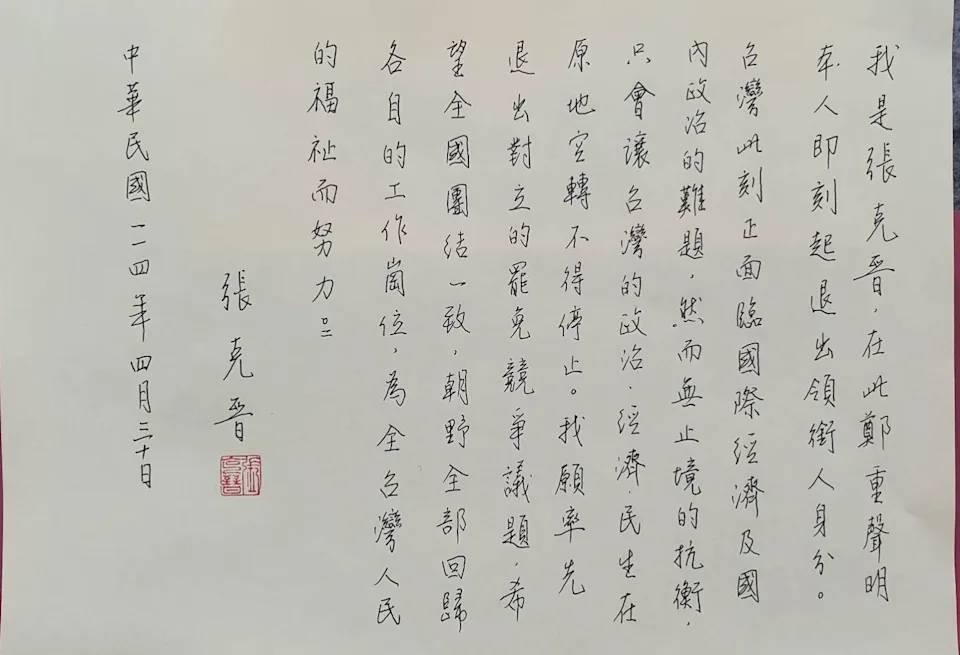 我是張克晉，在此鄭重聲明
本人即刻起退出領銜人身分。
台灣此刻正面臨國際經濟及國
內政治的難題，然而無止境的抗衡，
只會讓台灣的政治．經濟．民生在
原地空轉不得停止。我願率先
退出對立的罷免競爭議題．希
望全國團結一致，朝野全部回歸
各自的工作崗位，為全台灣人民
的福祉而努力。
張克晉
中華民國一一四年四月三十日